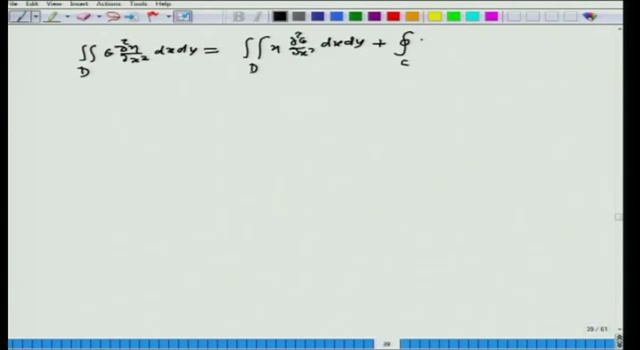 File View Insert Actions Tools Help
∬_D G ∂²η/∂x² dxdy = ∬_D η ∂²G/∂x² dxdy + ∮_C
39 / 61
39